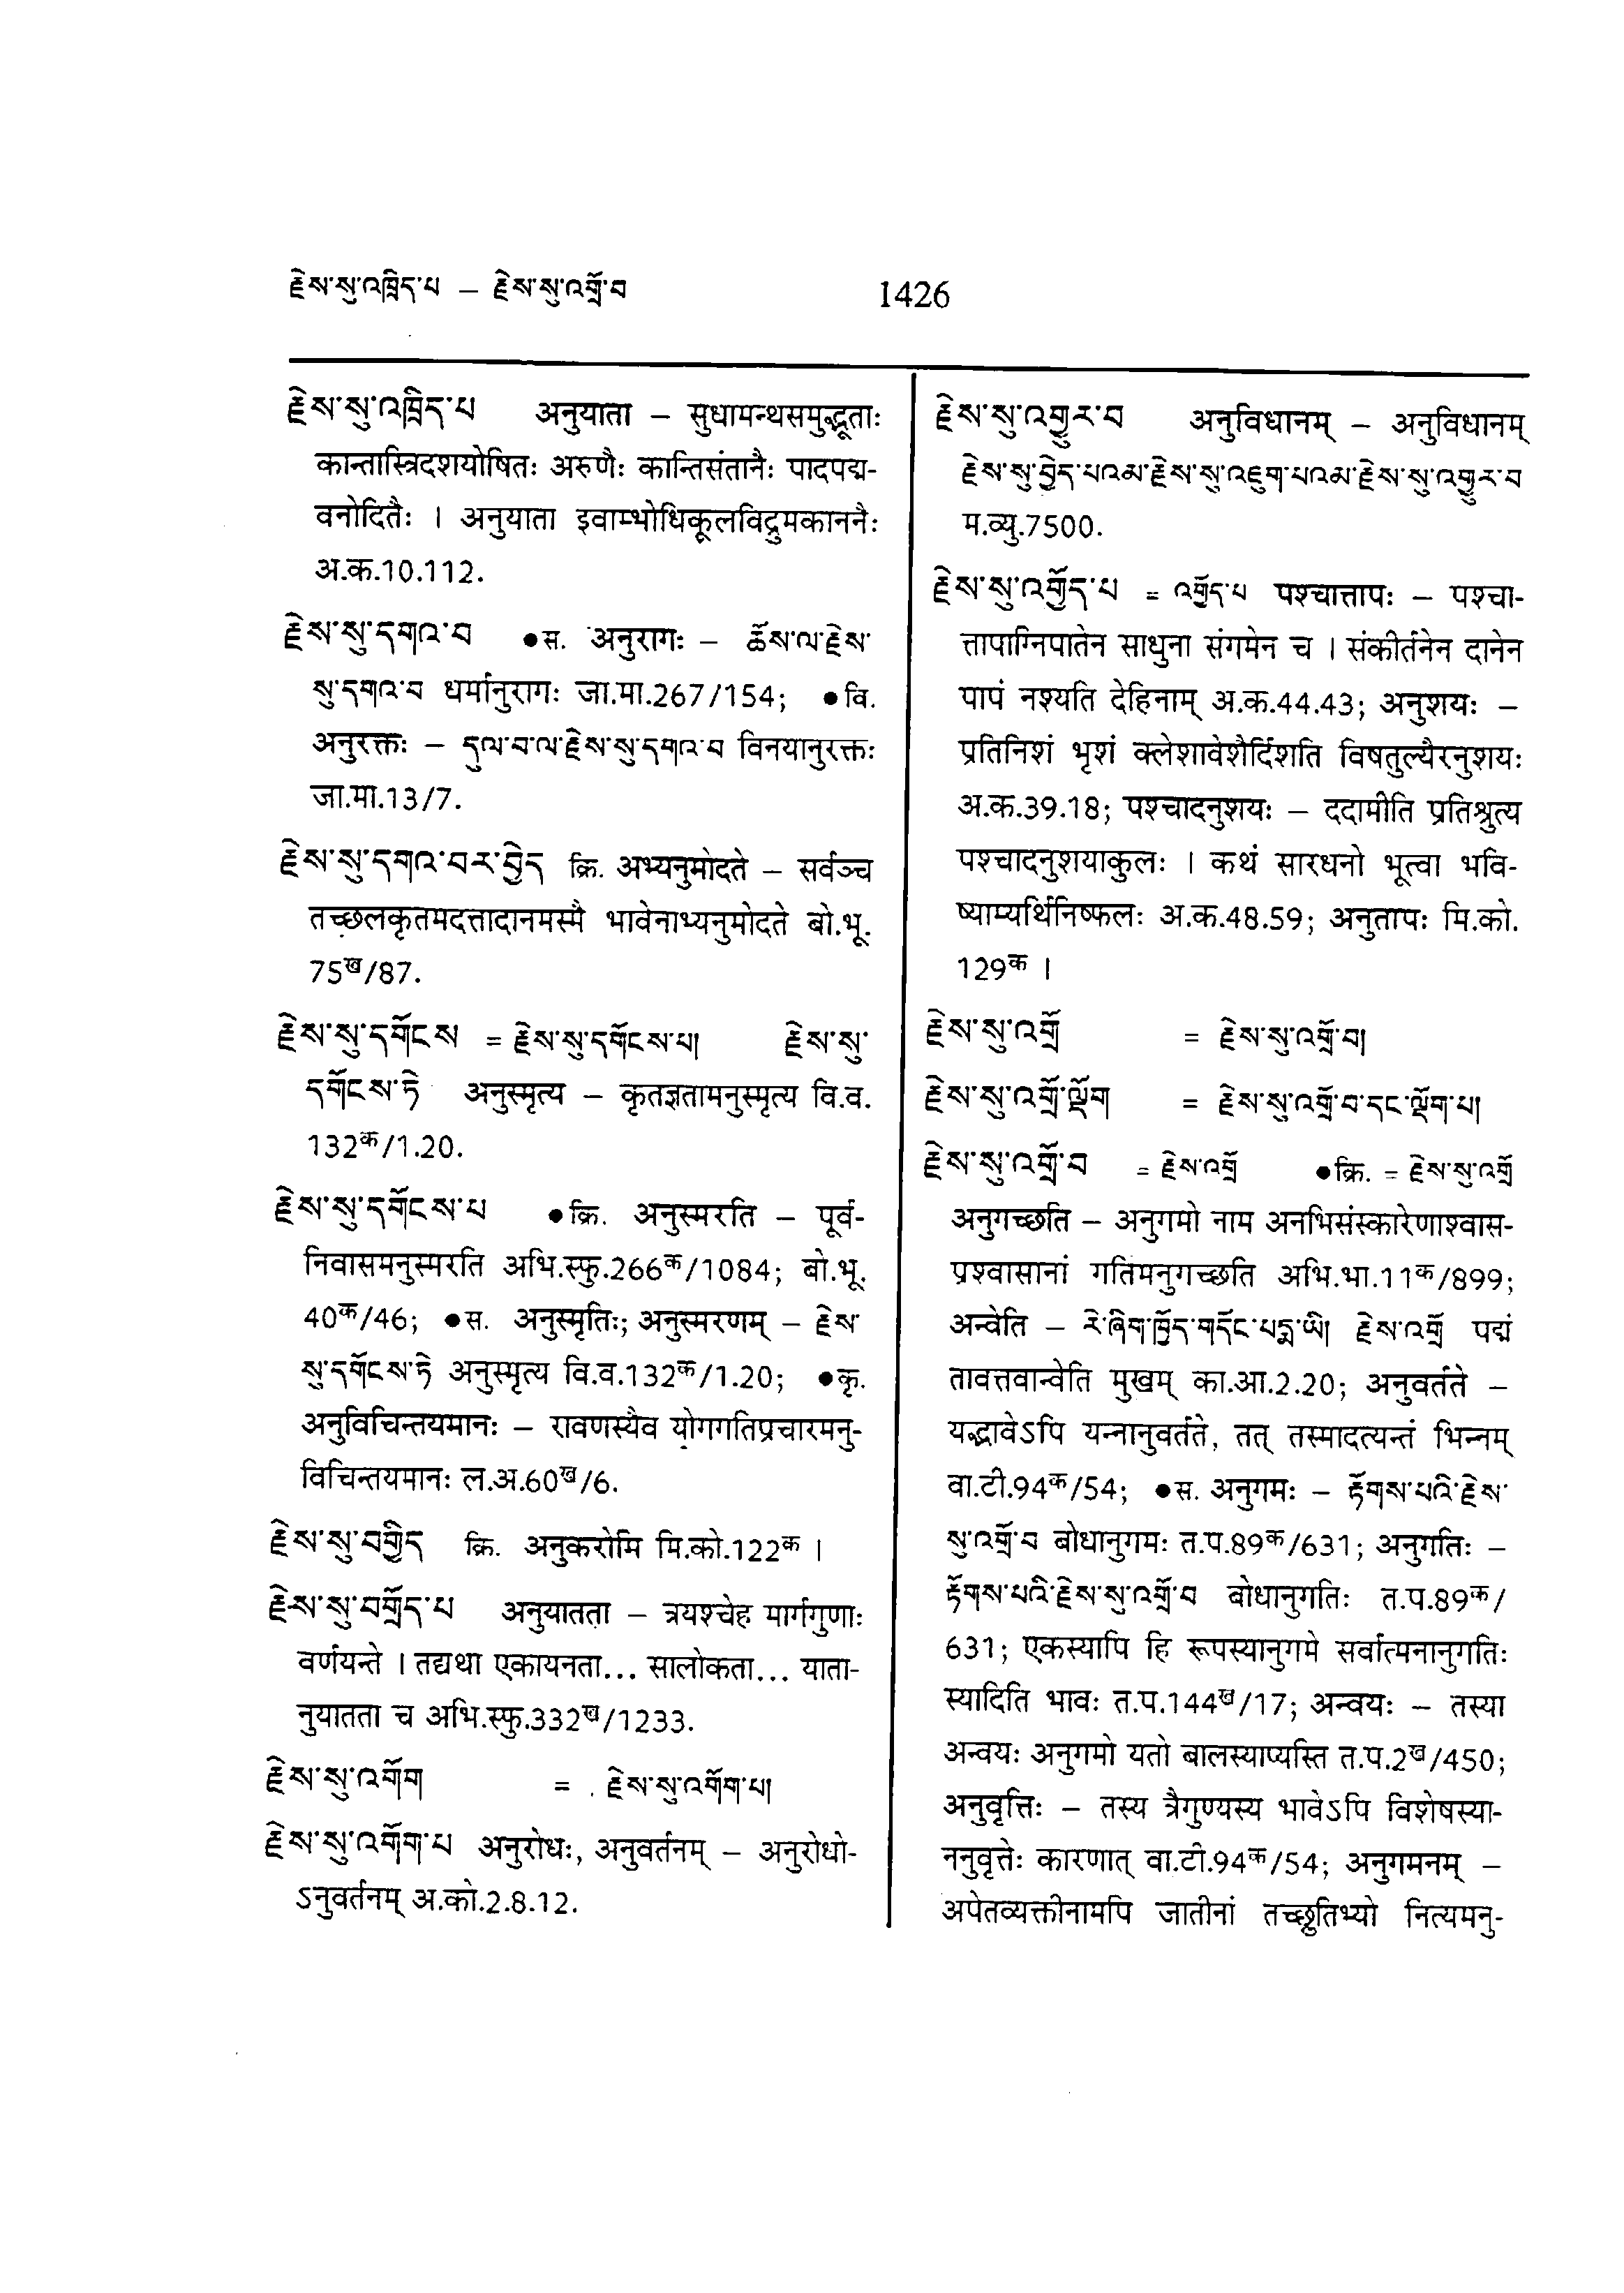 རྗེས་སུ་འཁྲིད་པ – རྗེས་སུ་འགྲོ་བ
1426
རྗེས་སུ་འཁྲིད་པ अनुयाता – सुधामन्थसमुद्भूताः
कान्तास्त्रिदशयोषितः अरुणैः कान्तिसंतानैः पादपद्म-
वनोदितैः । अनुयाता इवाम्भोधिकूलविद्रुमकाननैः
अ.क.10.112.
རྗེས་སུ་དགའ་བ ●स. अनुरागः – ཆོས་ལ་རྗེས་
སུ་དགའ་བ धर्मानुरागः जा.मा.267/154; ●वि.
अनुरक्तः – དུལ་བ་ལ་རྗེས་སུ་དགའ་བ विनयानुरक्तः
जा.मा.13/7.
རྗེས་སུ་དགའ་བར་བྱེད क्रि. अभ्यनुमोदते – सर्वञ्च
तच्छलकृतमदत्तादानमस्मै भावेनाभ्यनुमोदते बो.भू.
75ख/87.
རྗེས་སུ་དགོངས = རྗེས་སུ་དགོངས་པ། རྗེས་སུ་
དགོངས་ཏེ अनुस्मृत्य – कृतज्ञतामनुस्मृत्य वि.व.
132क/1.20.
རྗེས་སུ་དགོངས་པ ●क्रि. अनुस्मरति – पूर्व-
निवासमनुस्मरति अभि.स्फु.266क/1084; बो.भू.
40क/46; ●स. अनुस्मृतिः; अनुस्मरणम् – རྗེས་
སུ་དགོངས་ཏེ अनुस्मृत्य वि.व.132क/1.20; ●कृ.
अनुविचिन्तयमानः – रावणस्यैव योगगतिप्रचारमनु-
विचिन्तयमानः ल.अ.60ख/6.
རྗེས་སུ་བགྱིད क्रि. अनुकरोमि मि.को.122क ।
རྗེས་སུ་བགྲོད་པ अनुयातता – त्रयश्चेह मार्गगुणाः
वर्णयन्ते । तद्यथा एकायनता... सालोकता... याता-
नुयातता च अभि.स्फु.332ख/1233.
རྗེས་སུ་འགོག = རྗེས་སུ་འགོག་པ།
རྗེས་སུ་འགོག་པ अनुरोधः, अनुवर्तनम् – अनुरोधो-
ऽनुवर्तनम् अ.को.2.8.12.
རྗེས་སུ་འགྱུར་བ अनुविधानम् – अनुविधानम्
རྗེས་སུ་བྱེད་པའམ་རྗེས་སུ་འཇུག་པའམ་རྗེས་སུ་འགྱུར་བ
म.व्यु.7500.
རྗེས་སུ་འགྱོད་པ = འགྱོད་པ पश्चात्तापः – पश्चा-
त्तापाग्निपातेन साधुना संगमेन च । संकीर्तनेन दानेन
पापं नश्यति देहिनाम् अ.क.44.43; अनुशयः –
प्रतिनिशं भृशं क्लेशावेशैर्दिशति विषतुल्यैरनुशयः
अ.क.39.18; पश्चादनुशयः – ददामीति प्रतिश्रुत्य
पश्चादनुशयाकुलः । कथं सारधनो भूत्वा भवि-
ष्याम्यर्थिनिष्फलः अ.क.48.59; अनुतापः मि.को.
129क ।
རྗེས་སུ་འགྲོ = རྗེས་སུ་འགྲོ་བ།
རྗེས་སུ་འགྲོ་ལྡོག = རྗེས་སུ་འགྲོ་བ་དང་ལྡོག་པ།
རྗེས་སུ་འགྲོ་བ = རྗེས་འགྲོ ●क्रि. = རྗེས་སུ་འགྲོ
अनुगच्छति – अनुगमो नाम अनभिसंस्कारेणाश्वास-
प्रश्वासानां गतिमनुगच्छति अभि.भा.11क/899;
अन्वेति – རེ་ཞིག་ཁྱོད་གདོང་པདྨ་ཡི། རྗེས་འགྲོ पद्मं
तावत्तवान्वेति मुखम् का.आ.2.20; अनुवर्तते –
यद्भावेऽपि यन्नानुवर्तते, तत् तस्मादत्यन्तं भिन्नम्
वा.टी.94क/54; ●स. अनुगमः – རྟོགས་པའི་རྗེས་
སུ་འགྲོ་བ बोधानुगमः त.प.89क/631; अनुगतिः –
རྟོགས་པའི་རྗེས་སུ་འགྲོ་བ बोधानुगतिः त.प.89क/
631; एकस्यापि हि रूपस्यानुगमे सर्वात्मनानुगतिः
स्यादिति भावः त.प.144ख/17; अन्वयः – तस्या
अन्वयः अनुगमो यतो बालस्याप्यस्ति त.प.2ख/450;
अनुवृत्तिः – तस्य त्रैगुण्यस्य भावेऽपि विशेषस्या-
ननुवृत्तेः कारणात् वा.टी.94क/54; अनुगमनम् –
अपेतव्यक्तीनामपि जातीनां तच्छ्रुतिभ्यो नित्यमनु-